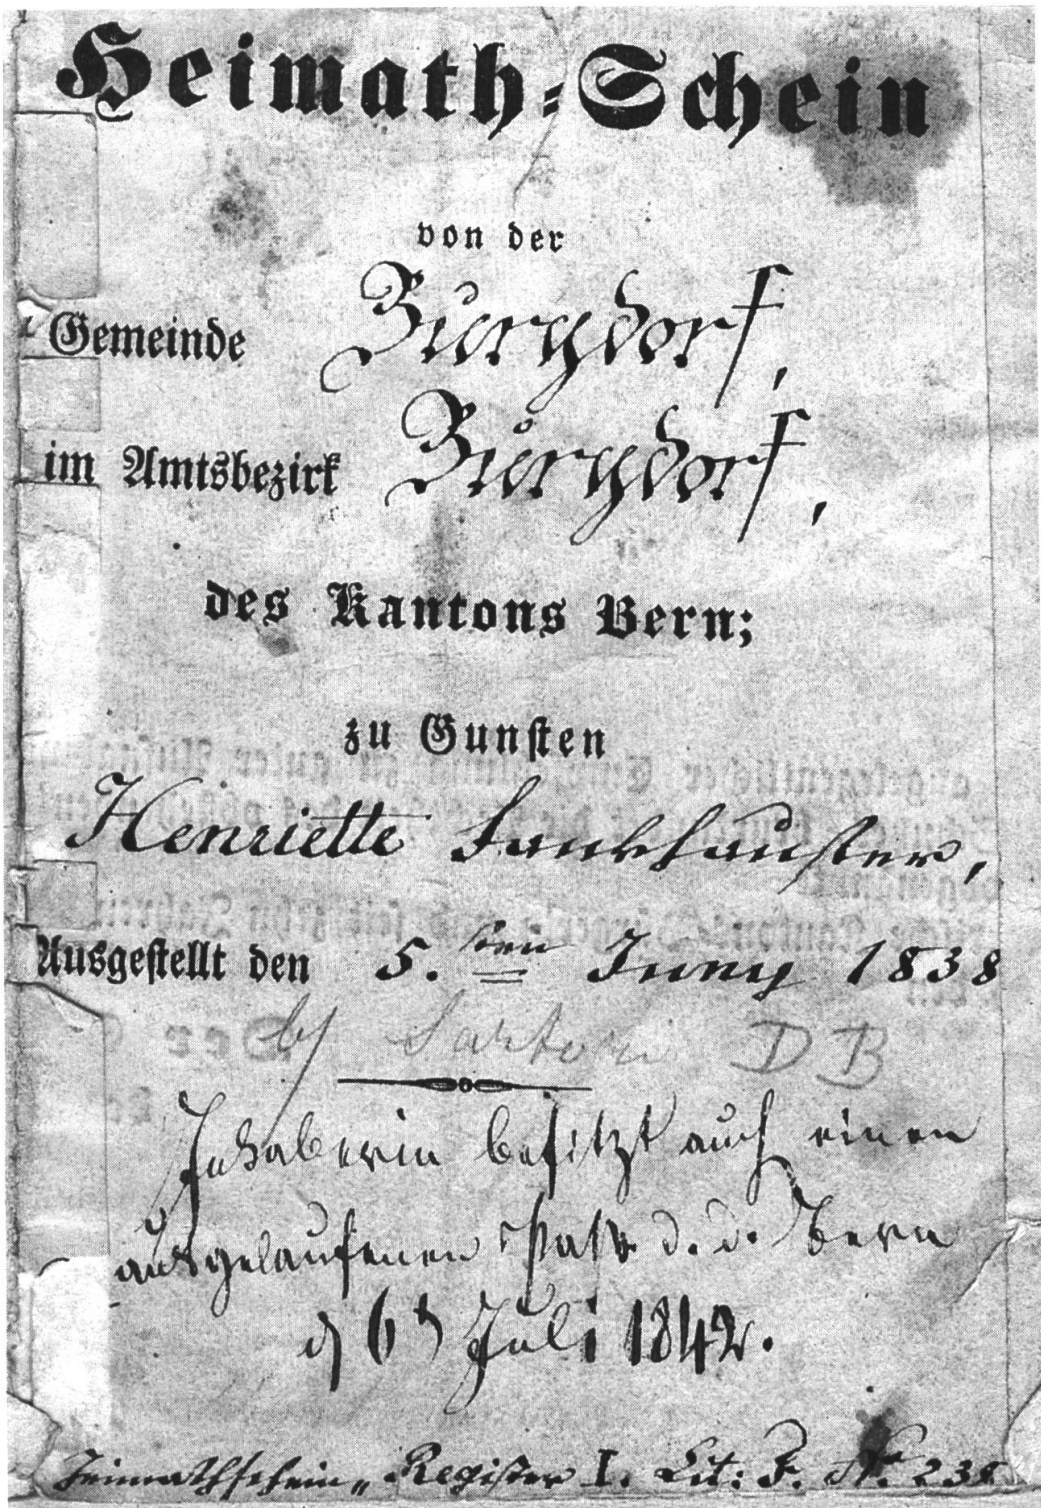 Heimath-Schein
von der
Gemeinde Burgdorf,
im Amtsbezirk Burgdorf,
des Kantons Bern;
zu Gunsten
Henriette Fankhauser,
Ausgestellt den 5.ten Juny 1838
Sartori DB
Inhaberin besitzt auch einen
ausgelaufenen Pass d. d. Bern
6 Juli 1842.
Heimathschein-Register I. Lit: F. No. 238